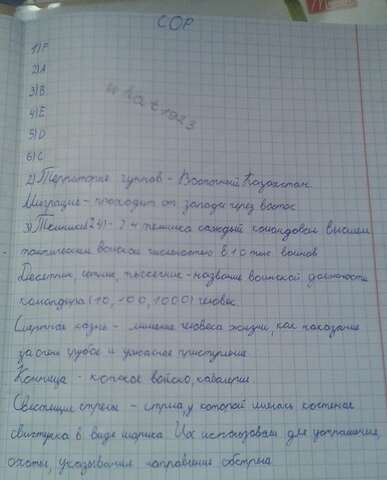 СОР
1) F
2) A
3) B
4) E
5) D
6) C
2) Территория гуннов - Восточный Казахстан.
Миграция - проходит от запада через восток
3) Темники (24) - 24 темника каждый командовал высшем
тактическим войском численостью в 10 тыс воинов
Десятник, сотник, тысячник - название воинской должности
командира (10, 100, 1000) человек.
Смертная казнь - лишение человека жизни, как наказание
за очень грубое и ужасное приступление
Конница - конское войско, кавалерия
Свистящие стрелы - стрела, у которой имелась костеная
свистулка в виде шарика. Их использовали для устрашения,
охоты, указывания направления обстрела